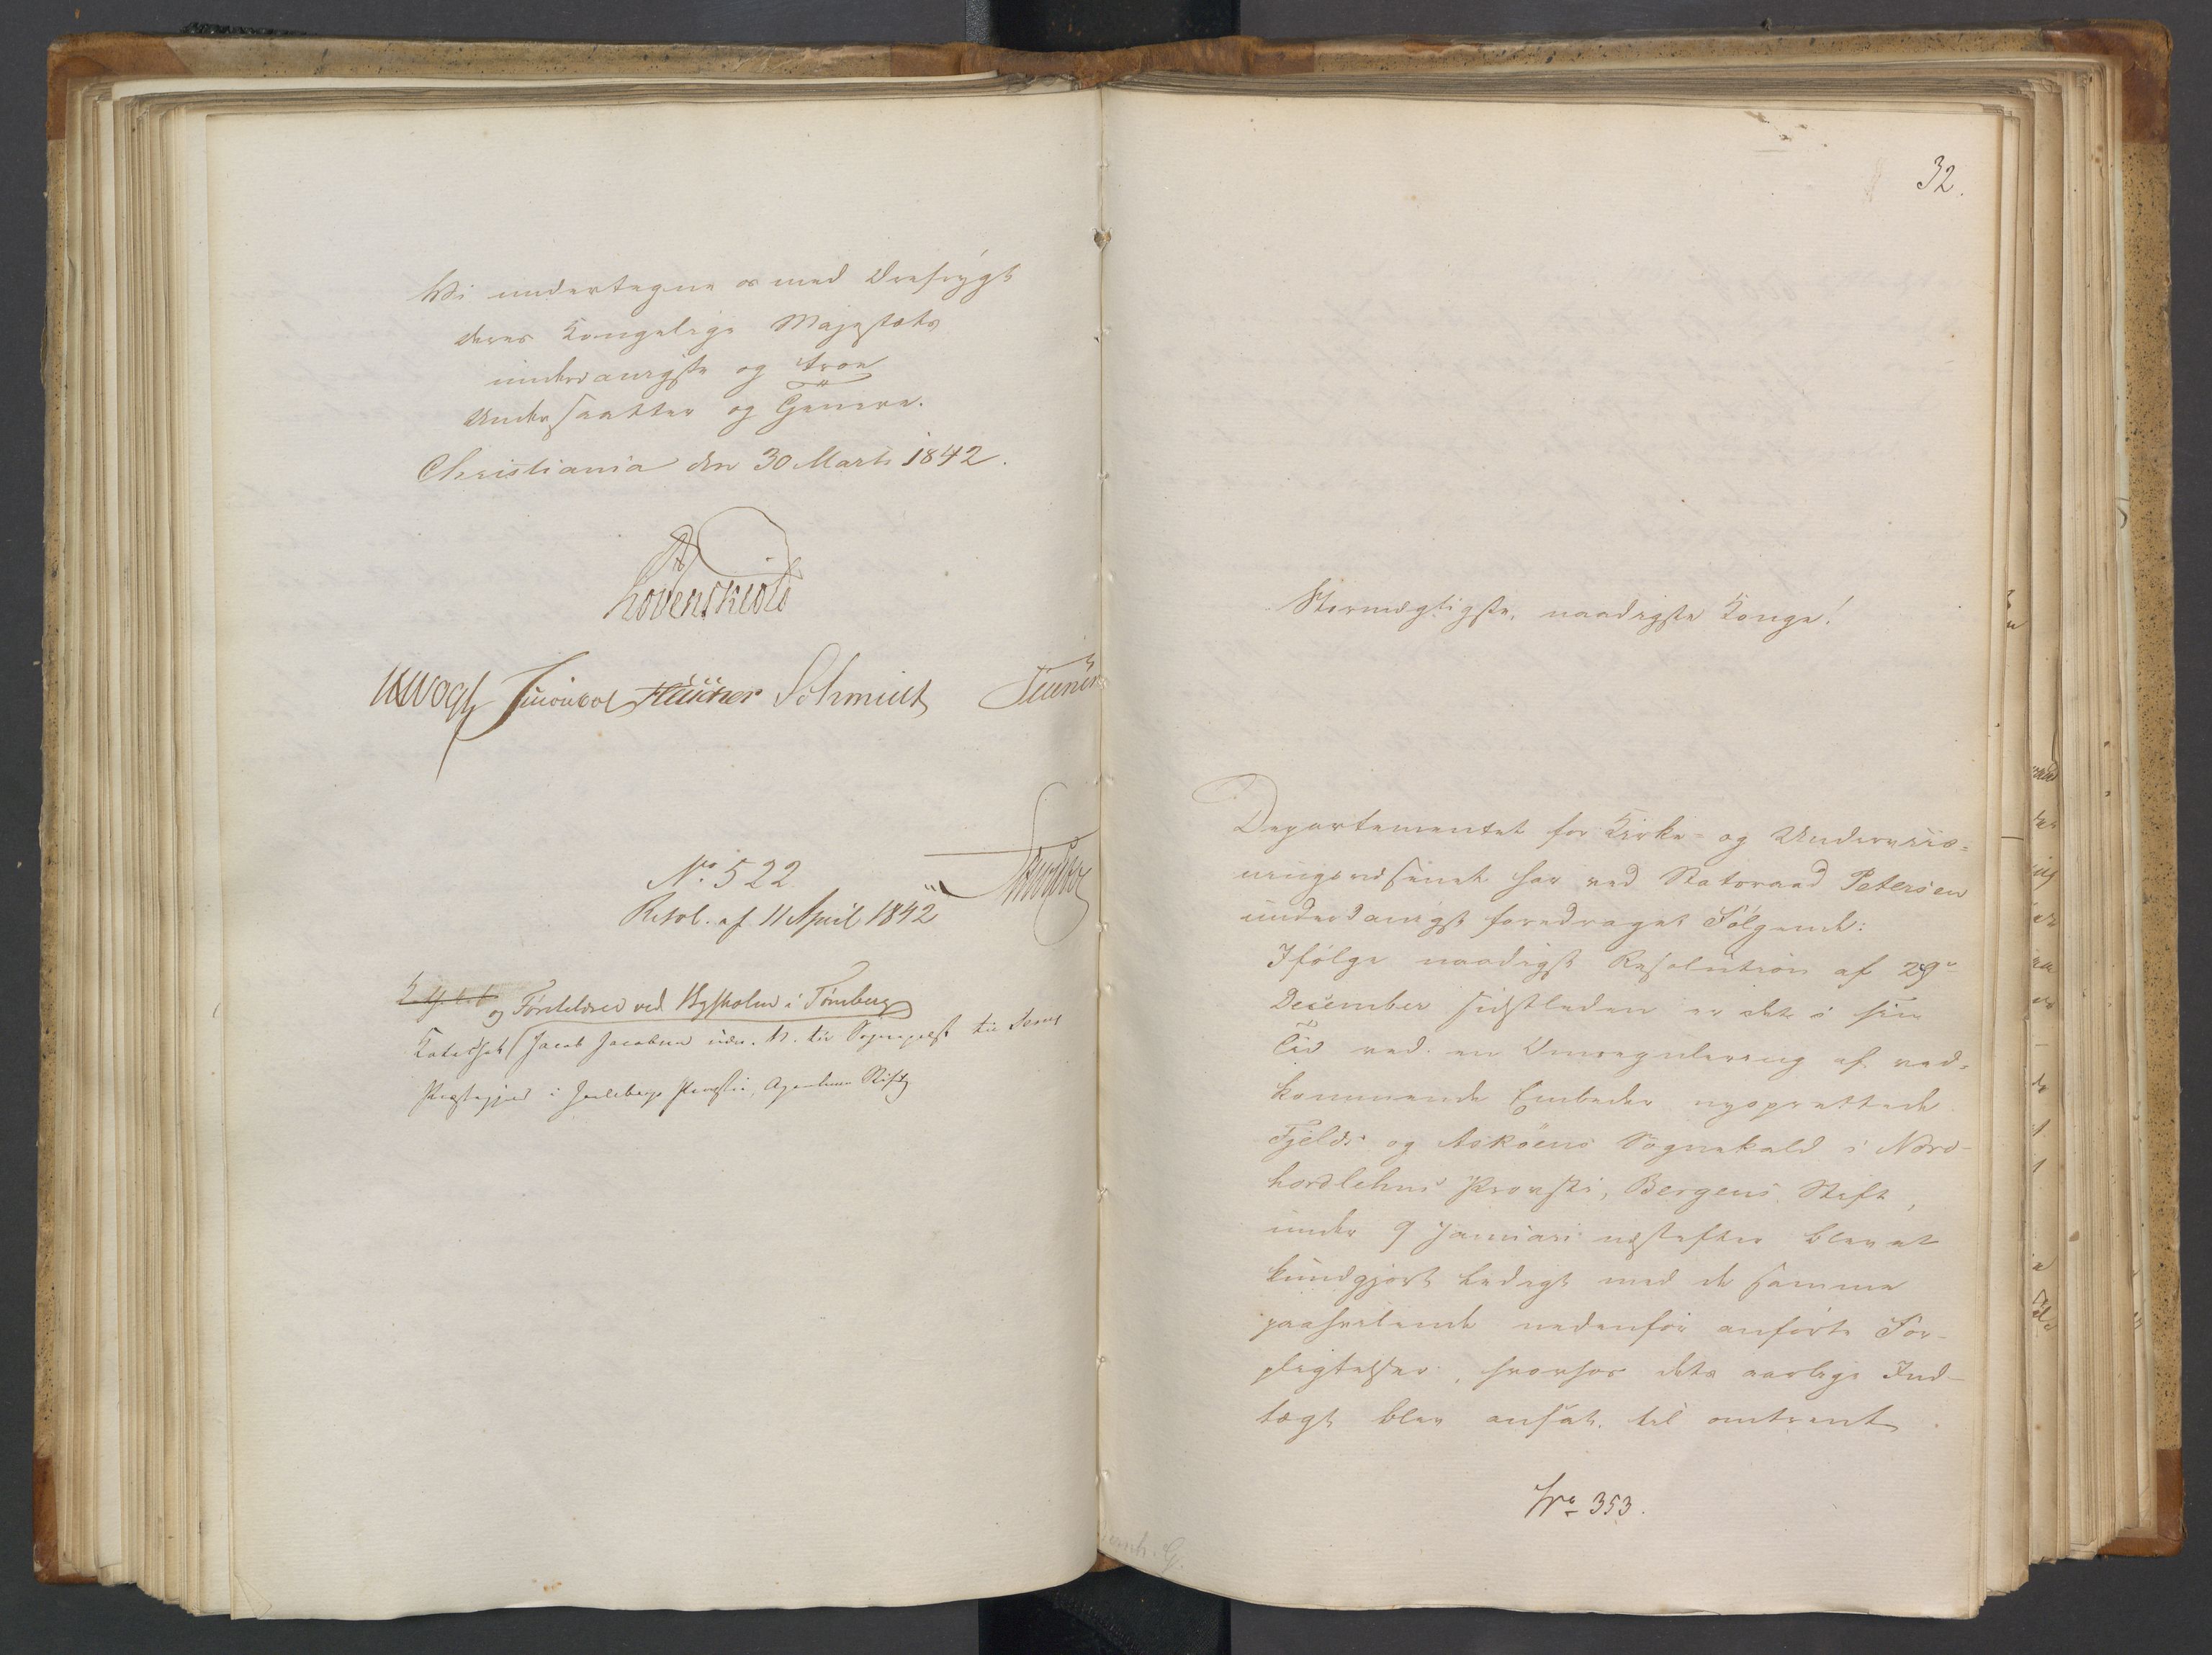 Vi undertegne os med Ærefrygt
deres Kongelige Majestæts
underdanigste og troe
Undersaatter og Tjenere.
Christiania den 30 Marts 1842.
Løvenskiold
Vogh Schmidt
No. 522
Resol. af 11 April 1842
og Førstelærer ved Bysskolen i Tønsberg
Katechet Jacob Jacobsen udn. til Sognepræst til Sems
Præstegjeld i Jarlsbergs Provsti, Agershuus Stift
32.
Stormægtigste, naadigste Konge!
Departementet for Kirke- og Underviis=
ningsvæsenet har ved Statsraad Petersen
underdanigst foredraget Følgende:
Ifølge naadigst Resolution af 29de
December sidstleden er det i sin
Tid ved en Omregulering af ved=
kommende Embeder nyoprettede
Fjelds og Askøens Sognekald i Nord-
hordlehns Provsti, Bergens Stift,
under 9 Januari næstefter blevet
kundgjort ledigt med de samme
paahvilende nedenfor anførte For-
pligtelser, hvorhos dets aarlige Ind-
tægt blev ansat til omtrent
No 353.